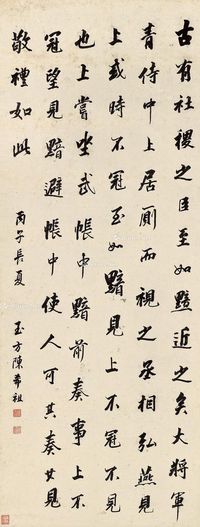 古有社稷之臣至如黯近之矣大將軍
青侍中上居厠而視之丞相弘燕見
上或時不冠至如黯見上不冠不見
也上嘗坐武帳中黯前奏事上不
冠望見黯避帳中使人可其奏其見
敬禮如此
丙子長夏
玉方陳希祖